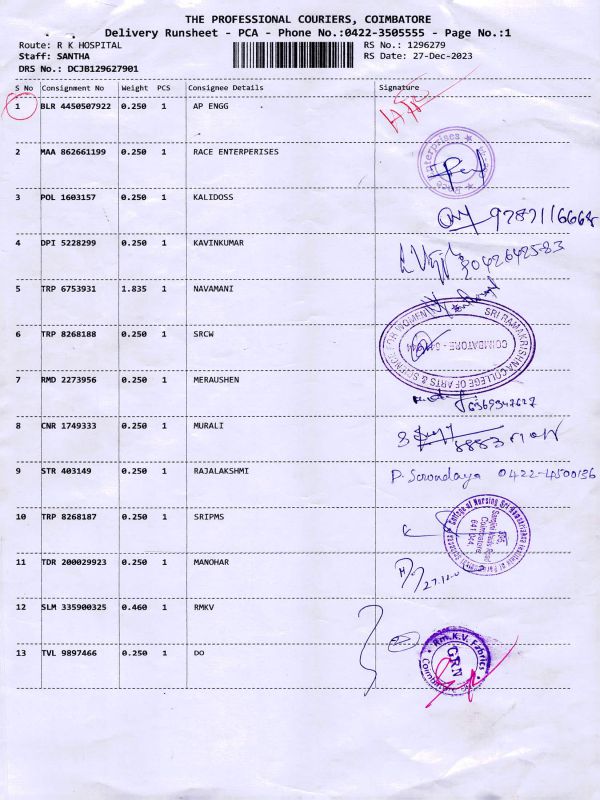 THE PROFESSIONAL COURIERS, COIMBATORE
Delivery Runsheet - PCA - Phone No.:0422-3505555 - Page No.:1
Route: R K HOSPITAL RS No.: 1296279
Staff: SANTHA RS Date: 27-Dec-2023
DRS No.: DCJB129627901
S No Consignment No Weight PCS Consignee Details Signature
1 BLR 4450507922 0.250 1 AP ENGG
2 MAA 862661199 0.250 1 RACE ENTERPERISES
Race Enterprises
3 POL 1603157 0.250 1 KALIDOSS
9787116668
4 DPI 5228299 0.250 1 KAVINKUMAR
8042642583
5 TRP 6753931 1.835 1 NAVAMANI
6 TRP 8268188 0.250 1 SRCW
SRI RAMAKRISHNA COLLEGE OF ARTS & SCIENCE FOR WOMEN
COIMBATORE
7 RMD 2273956 0.250 1 MERAUSHEN
6369347627
8 CNR 1749333 0.250 1 MURALI
9 STR 403149 0.250 1 RAJALAKSHMI
0422-4500196
10 TRP 8268187 0.250 1 SRIPMS
Coimbatore
641 044
11 TDR 200029923 0.250 1 MANOHAR
12 SLM 335900325 0.460 1 RMKV
13 TVL 9897466 0.250 1 DO
Rm.K.V. Fabrics
GRN
Coimbatore